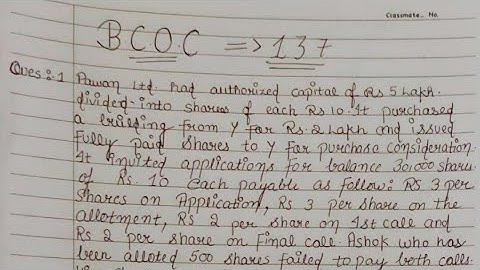 Classmate.. No.
BCOC => 137
Ques:1 Pawan Ltd. had authorized capital of Rs 5 Lakh.
divided into shares of each Rs 10. It purchased
a building from Y for Rs. 2 Lakh and issued
fully paid shares to Y for purchase consideration.
It invited applications for balance 30,000 shares
of Rs. 10 each payable as follow: Rs 3 per
shares on Application, Rs 3 per share on the
allotment, Rs 2 per share on 1st call and
Rs 2 per share on Final call. Ashok who has
been alloted 500 shares failed to pay both calls.